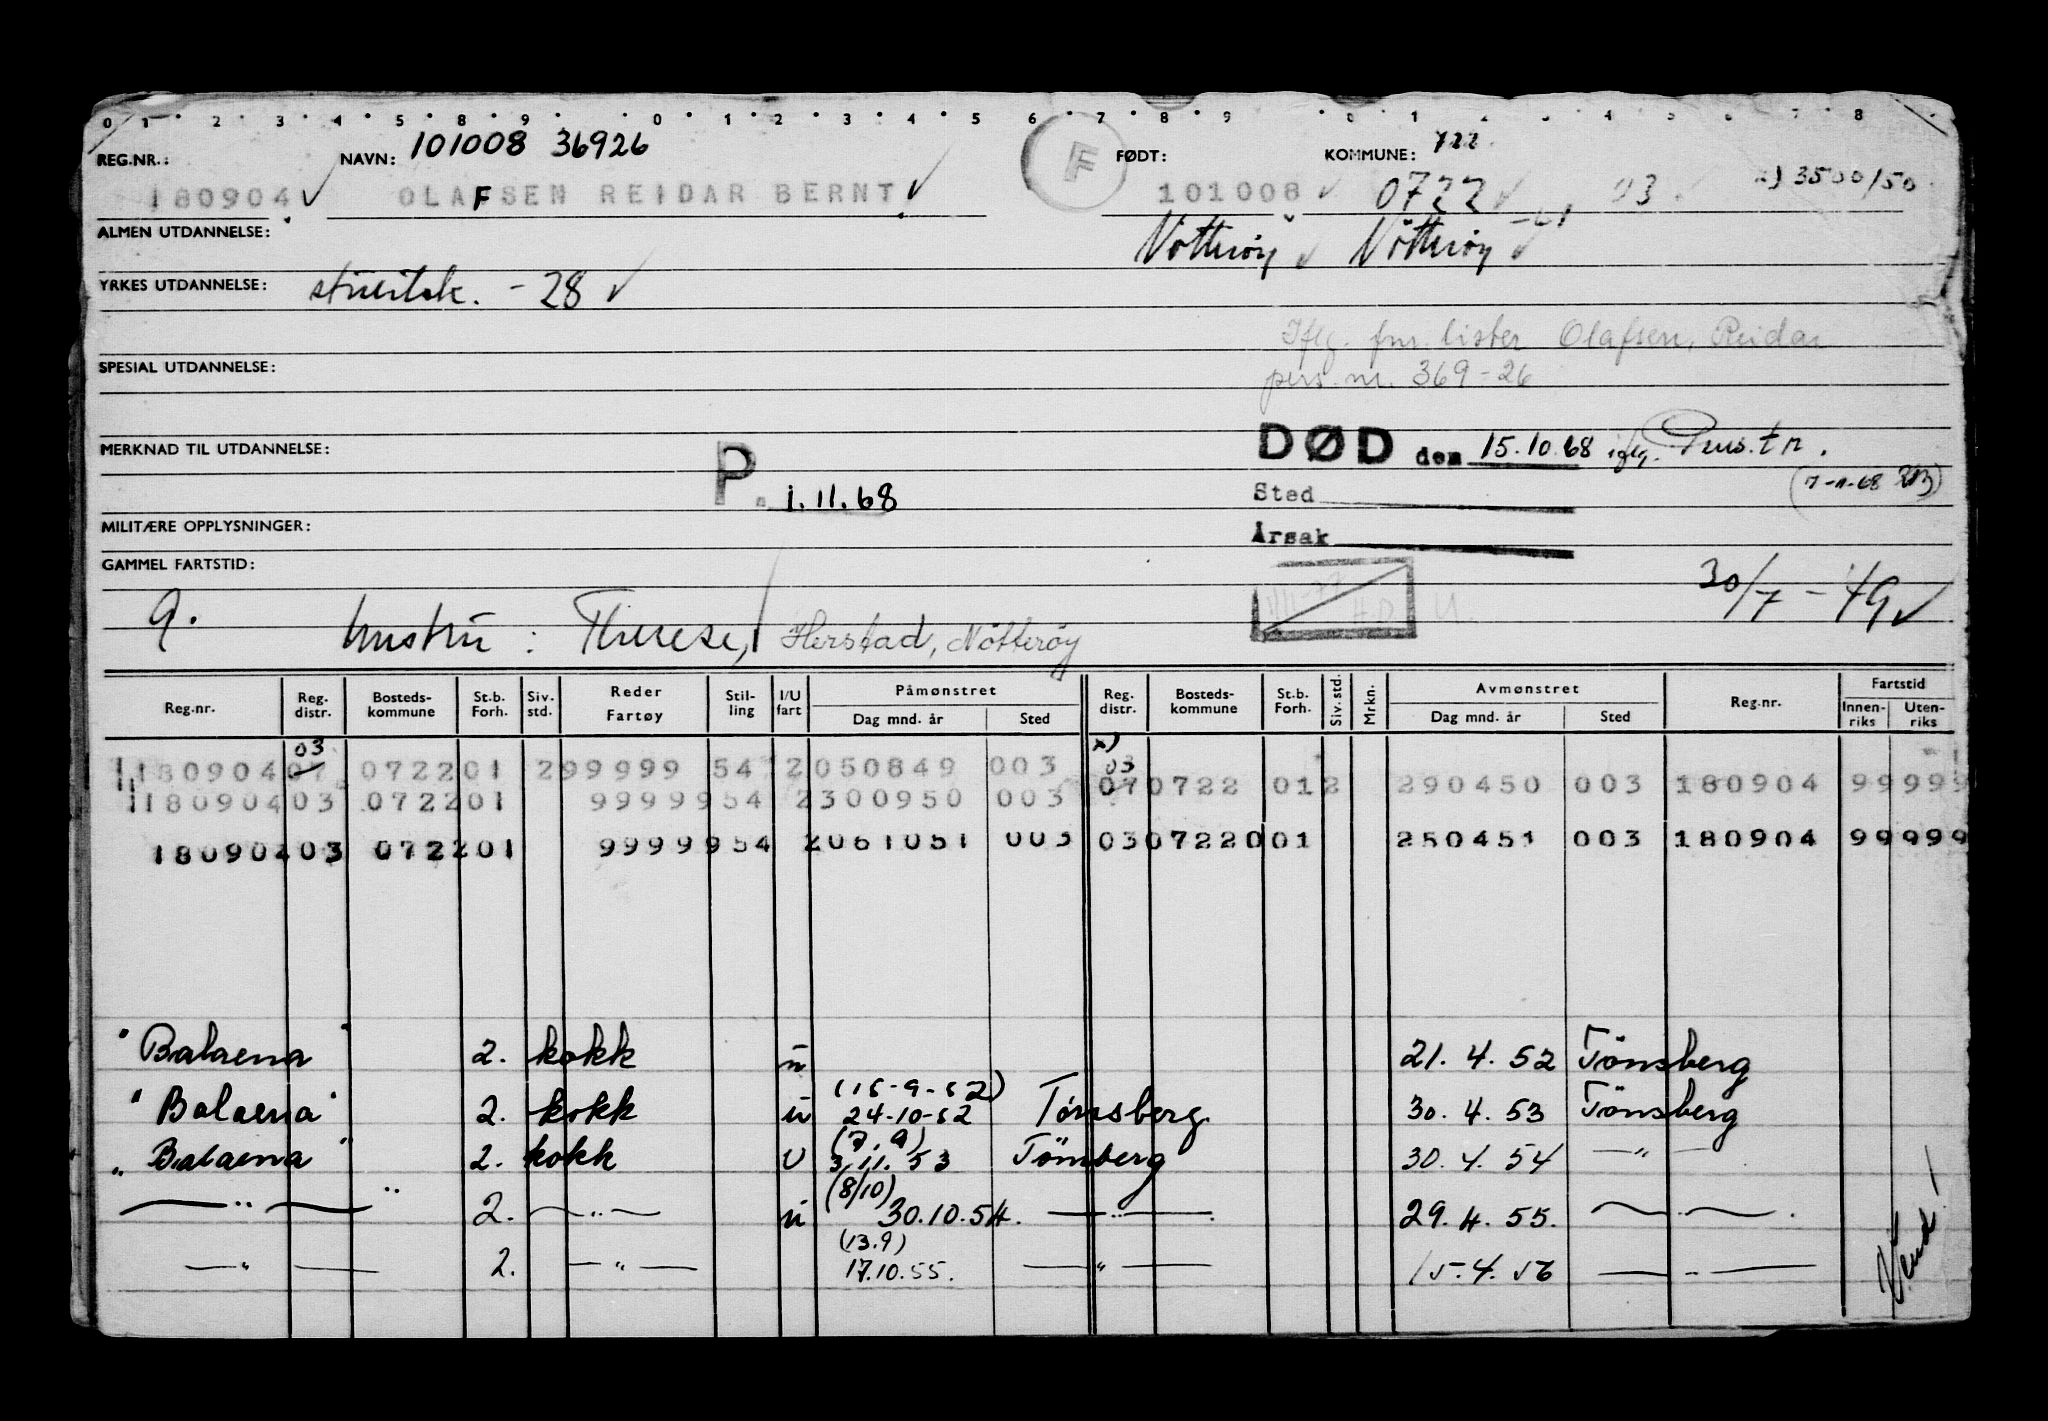 0 1 2 3 4 5 8 9 0 1 2 3 4 5 6 7 8 9 0 1 2 3 4 5 6 7 8
REG.NR.: NAVN: 101008 36926 F FØDT: KOMMUNE: 722.
180904 OLAFSEN REIDAR BERNT 101008 0722 03 x) 3500/50
ALMEN UTDANNELSE: Nøtterøy Nøtterøy
YRKES UTDANNELSE: stuertsk. - 28
Iflg. fnr. lister Olafsen, Reidar
SPESIAL UTDANNELSE: pers. nr. 369-26
MERKNAD TIL UTDANNELSE: DØD den 15.10.68 iflg. Pens.tr.
P. 1.11.68 Sted (7-11-68)
MILITÆRE OPPLYSNINGER: Årsak
GAMMEL FARTSTID: 30/7 - 49
9. hustru: Therese, Herstad, Nøtterøy
Reg.nr. Reg. distr. Bosteds-kommune St.b. Forh. Siv. std. Reder Fartøy Stil-ling I/U fart Påmønstret Dag mnd. år Sted Reg. distr. Bosteds-kommune St.b. Forh. Siv. std. Mrkn. Avmønstret Dag mnd. år Sted Reg.nr. Fartstid Innen-riks Uten-riks
03 x) 03
180904 07 0722 01 2 99999 54 2 050849 003 07 0722 01 2 290450 003 180904 99999
180904 03 0722 01 99999 54 2 300950 003
180904 03 0722 01 99999 54 2 061051 003 03 0722 001 250451 003 180904 99999
"Balaena" 2. kokk u 21. 4. 52 Tönsberg
(15-9-52)
"Balaena" 2. kokk u 24-10-52 Tønsberg. 30. 4. 53 Tönsberg
(7. 9)
"Balaena" 2. kokk U 3.11. 53 Tönsberg 30. 4. 54 — " —
(8/10)
— " — 2. — " — u 30.10.54. — " — 29. 4. 55. — " —
(13.9)
— " — 2. — " — 17.10.55. — " — 15. 4. 56 — " —
Vend!